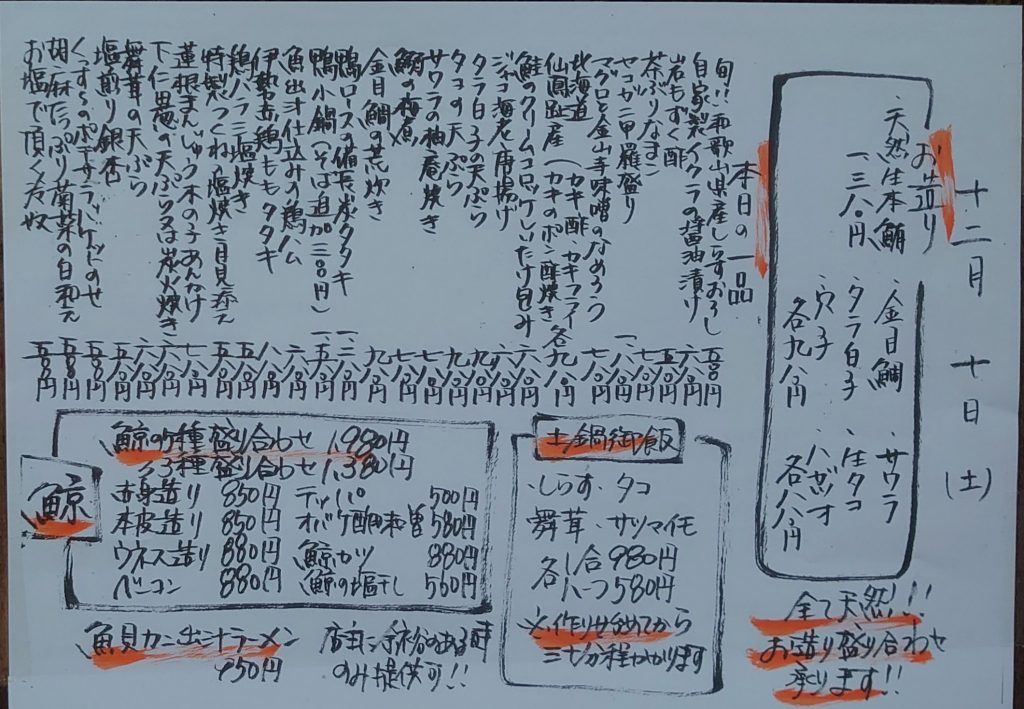 十二月 十日 (土)
お造り
・天然生本鮪 一三八〇円
・金目鯛
・タラ白子
・穴子
各九八〇円
・サワラ
・生タコ
・ハガツオ
各八八〇円
全て天然!!
お造り盛り合わせ
承ります!!
本日の一品
旬!!和歌山県産しらすおろし 五八〇円
自家製イクラの醤油漬け 六八〇円
岩もずく酢 五八〇円
茶ぶりなまこ 七八〇円
セコガニ甲羅盛り 一、八八〇円
マグロと金山寺味噌のなめろう 七八〇円
北海道
仙鳳趾産 (カキ酢、カキフライ
カキのポン酢焼き 各九八〇円
鮭のクリームコロッケしいたけ包み 六八〇円
ジャコ海老唐揚げ 六八〇円
タラ白子の天ぷら 九八〇円
タコの天ぷら 九八〇円
サワラの柚庵焼き 八八〇円
鯛の梅煮 七八〇円
金目鯛の荒炊き 九八〇円
鴨ロースの備長炭タタキ 一、二八〇円
鴨小鍋(そば追加三〇〇円) 一、五八〇円
魚出汁仕込みの鶏ハム 六八〇円
伊勢赤鶏ももタタキ 八八〇円
鶏ハラミ塩焼き 五八〇円
特製つくね塩焼き月見添え 五八〇円
蓮根まんじゅう木の子あんかけ 七八〇円
下仁田葱の天ぷら又は炭火焼き 六八〇円
舞茸の天ぷら 六八〇円
塩煎り銀杏 五八〇円
くんせいのポテサラ、バゲットのせ 五八〇円
胡麻たっぷり菊菜の白和え 五八〇円
お塩で頂く冷奴 五八〇円
土鍋御飯
・しらす・タコ
・舞茸・サツマイモ
各一合980円
ハーフ580円
※作り始めてから
三十分程かかります
鯨
鯨の5種盛り合わせ 1,980円
〃3種盛り合わせ 1,380円
赤身造り 850円
本皮造り 850円
ウネス造り 880円
ベーコン 880円
テッパ 500円
オバケ酢味噌 580円
鯨カツ 880円
鯨の塩干し 560円
魚貝カニ出汁ラーメン
950円
店主に余裕のある時
のみ提供可!!